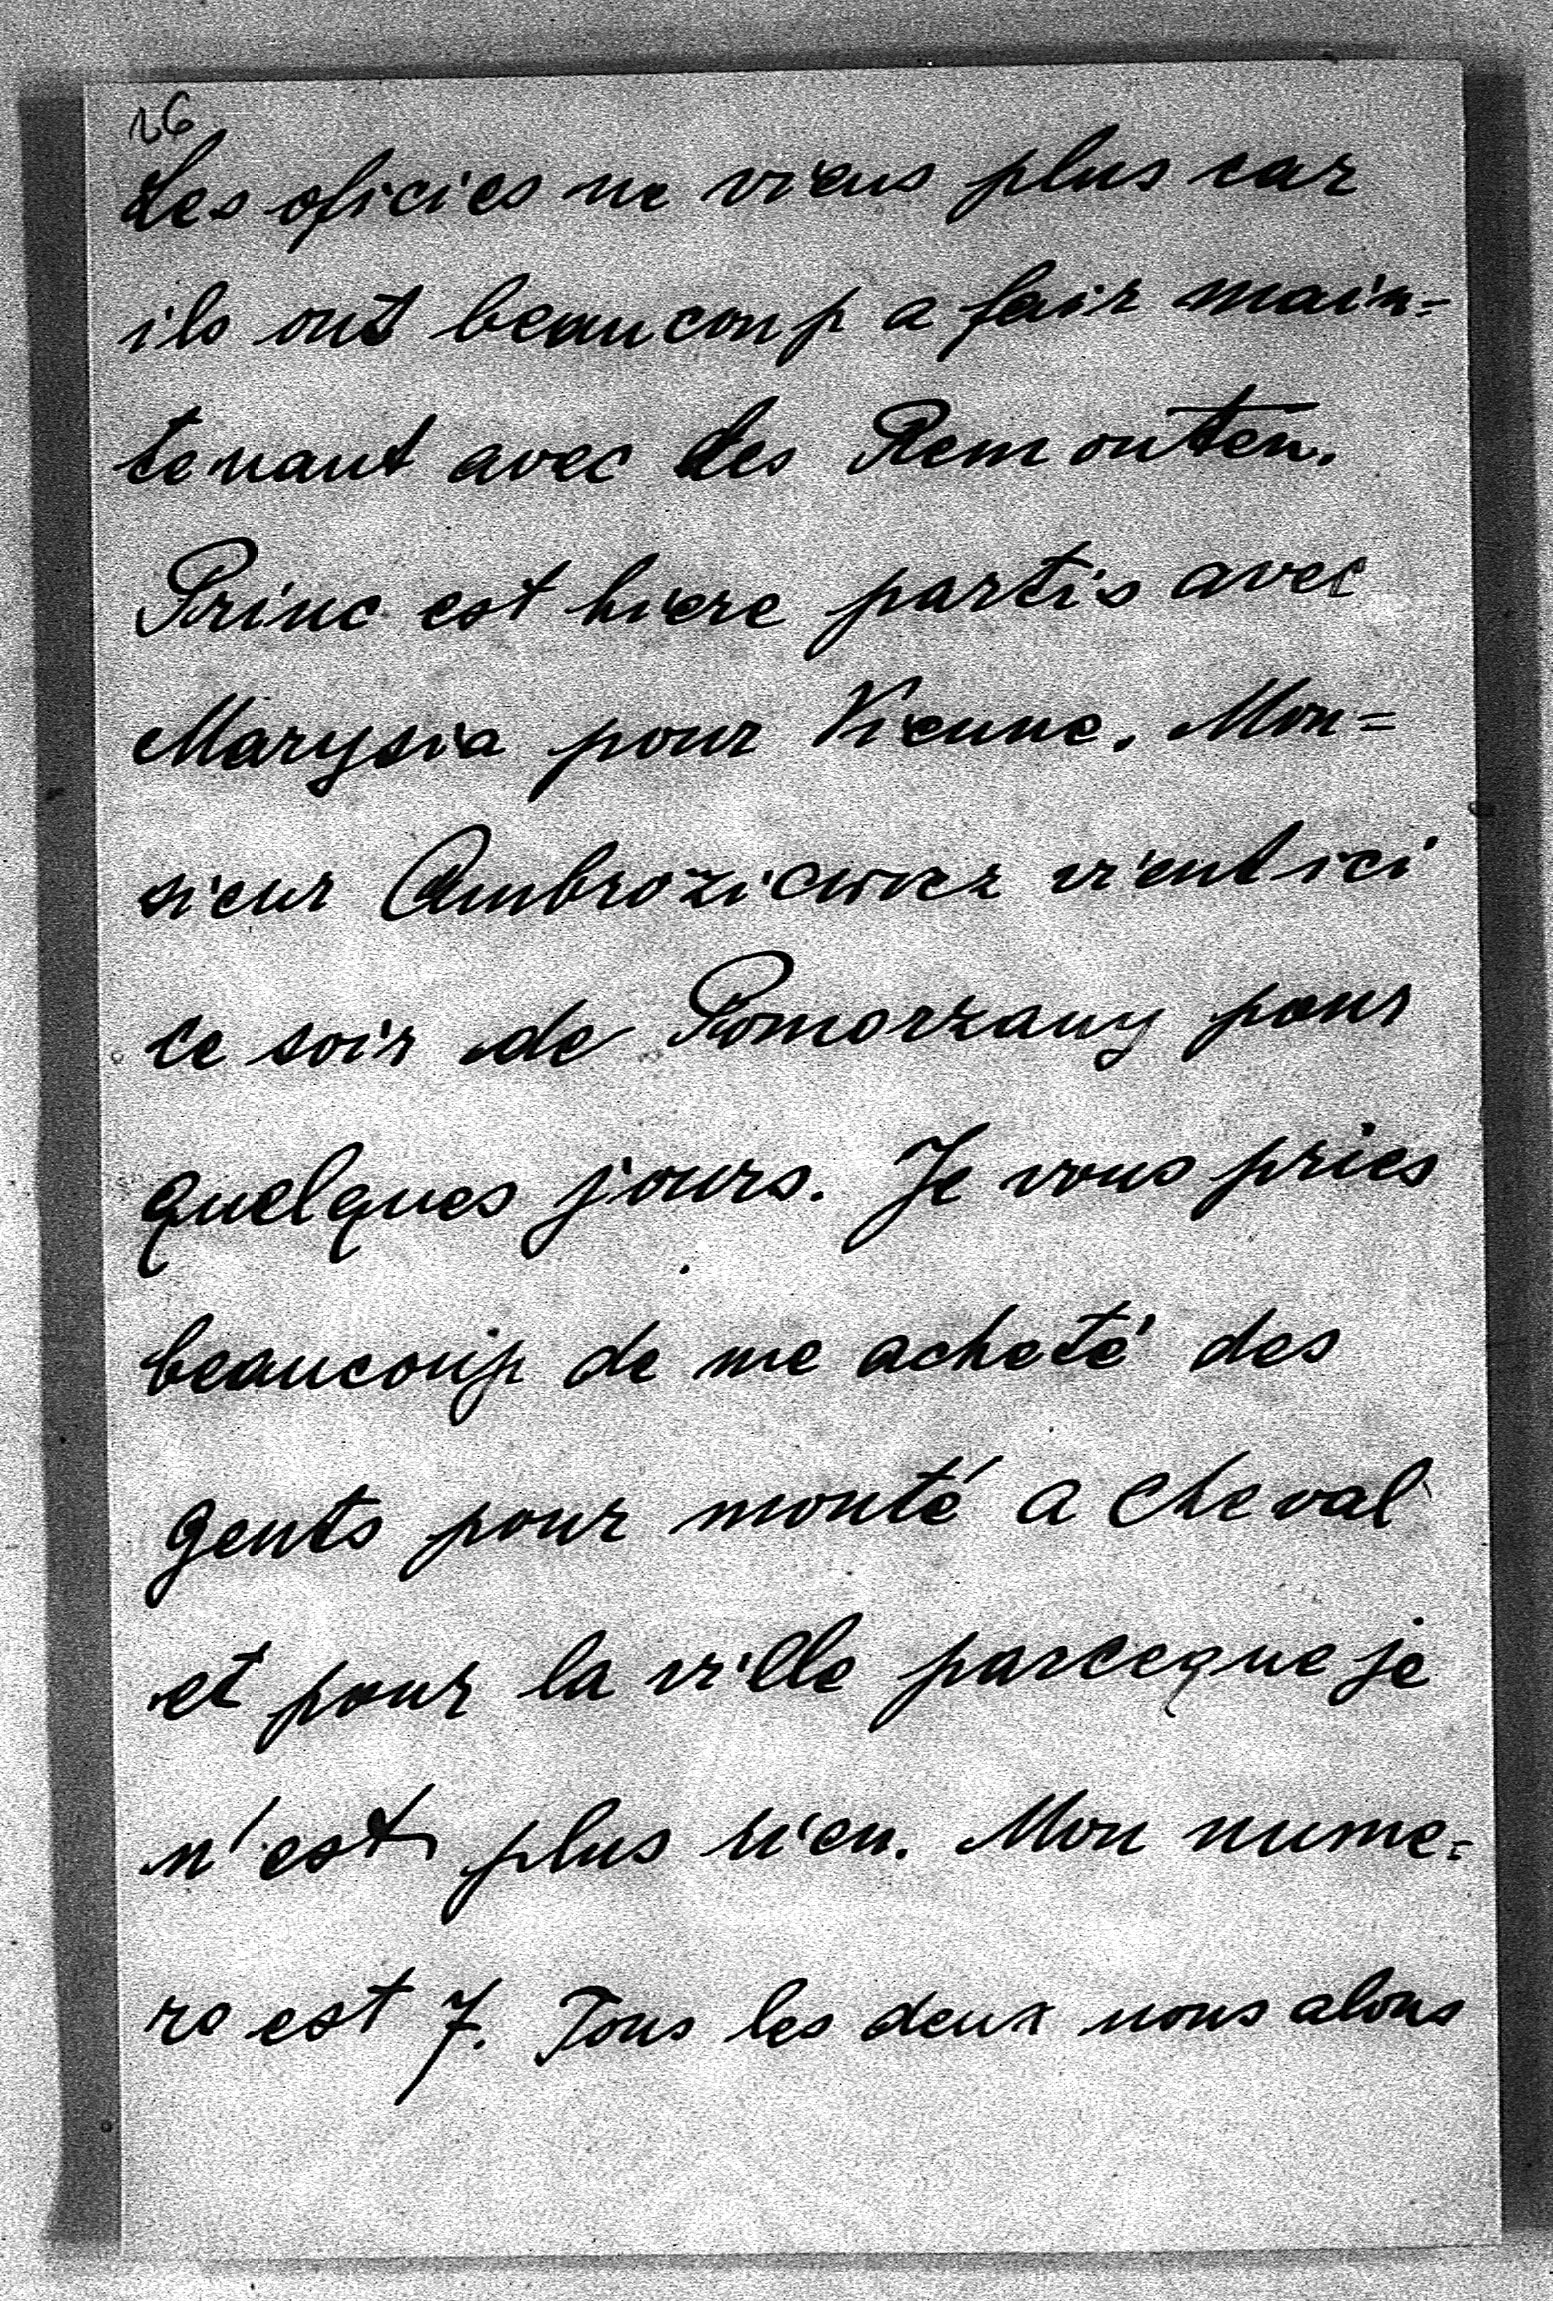 26
Les oficies ne viens plus car
ils ont beaucoup a fair main=
tenant avec des Remonten.
Princ est hiere partis avec
Marysia pour Vienne. Mon=
sieur Ambroziewicz vient ici
ce soir de Pomorzany pour
quelques jours. Je vous pries
beaucoup de me acheté des
gents pour monté a cheval
et pour la ville parceque je
n'est plus rien. Mon nume=
ro est 7. Tous les deux nous alons